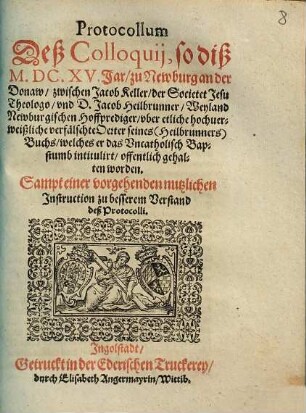 8
Protocollum
Deß Colloquij, so diß
M. DC. XV. Jar/ zu Newburg an der
Donaw/ zwischen Jacob Keller/ der Societet Jesu
Theologo/ vnd D. Jacob Heilbrunner/ Weyland
Newburgischen Hoffprediger/ vber etliche hochver-
weißliche verfälschte Oerter seines (Heilbrunners)
Buchs/ welches er das Vncatholisch Bap-
stumb intitulirt/ offentlich gehal-
ten worden.
Sampt einer vorgehenden nutzlichen
Instruction zu besserem Verstand
deß Protocolli.
Ingolstadt/
Getruckt in der Ederischen Truckerey/
durch Elisabeth Angermayrin/ Wittib.